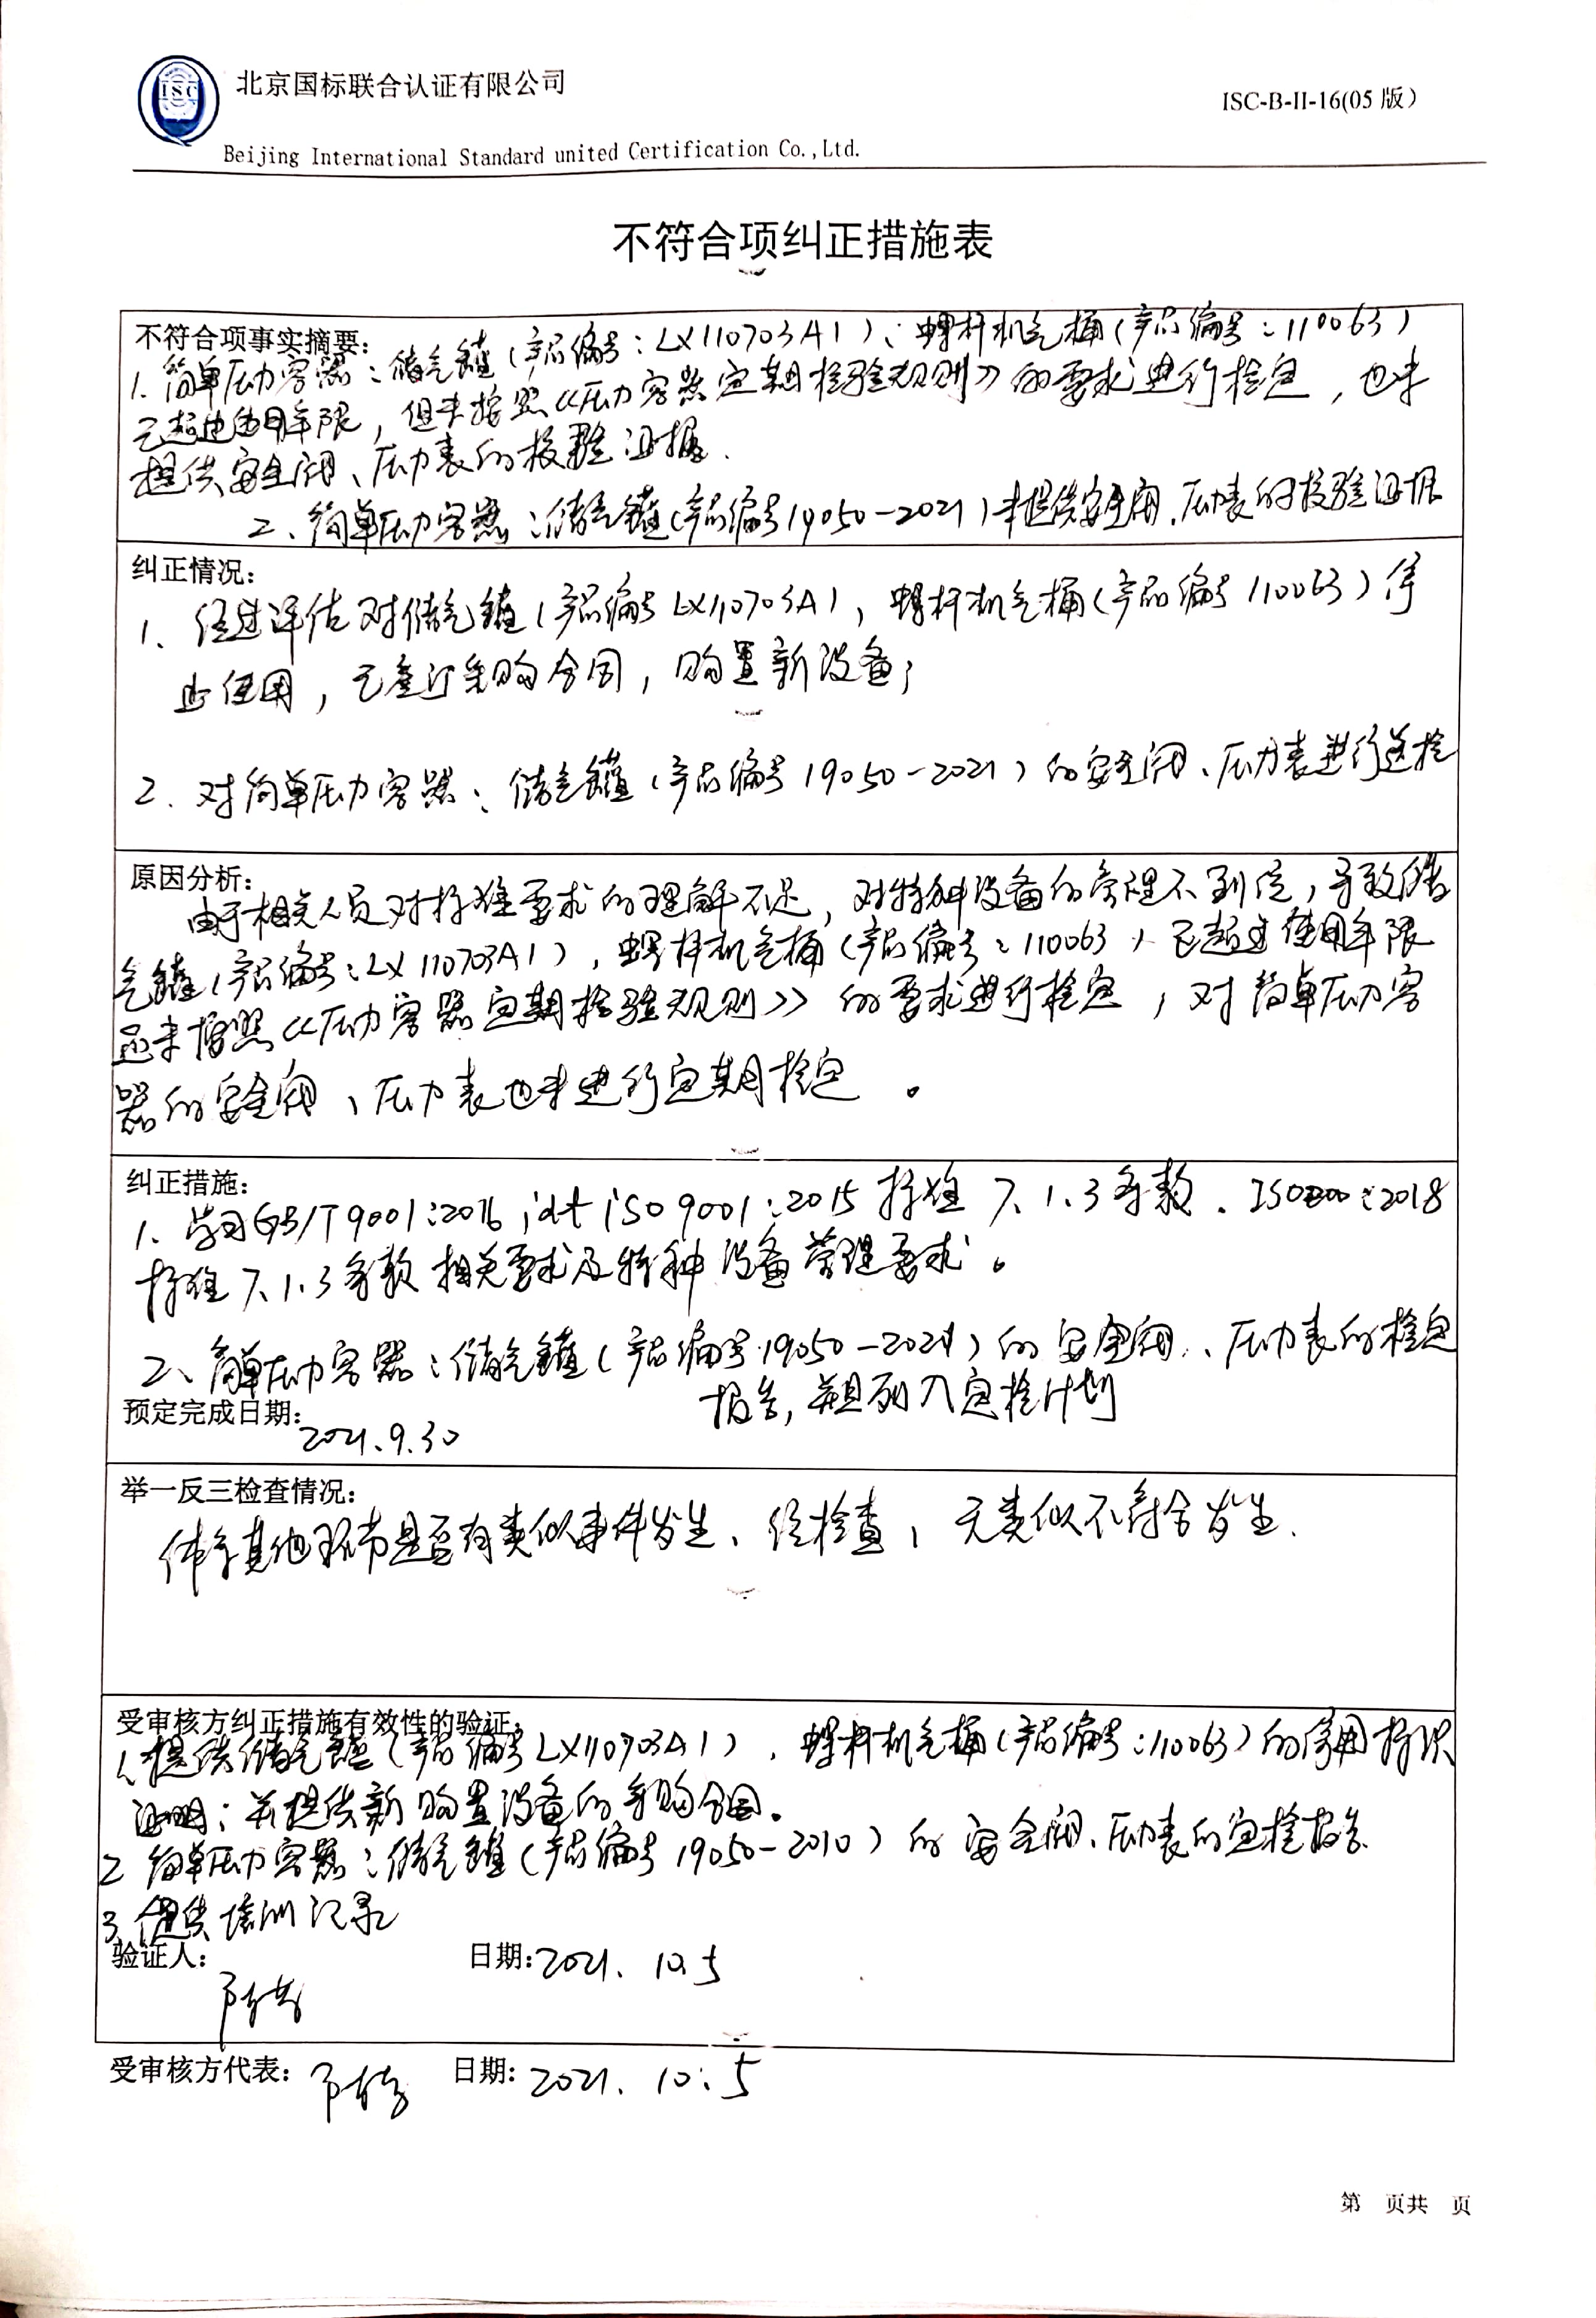 ISC
北京国标联合认证有限公司
ISC-B-II-16(05 版)
Beijing International Standard united Certification Co.,Ltd.
不符合项纠正措施表
不符合项事实摘要:
1. 简单压力容器：储气罐（产品编号：LX110703A1）、螺杆机气桶（产品编号：110063）
已超过使用年限，但未按照《压力容器定期检验规则》的要求进行检定，也未
提供安全阀、压力表的校验证据.
2、简单压力容器：储气罐（产品编号19050-2021）未提供安全阀、压力表的校验证据
纠正情况:
1、经过评估对储气罐（产品编号LX110703A1，螺杆机气桶（产品编号110063）停
止使用，已签订采购合同，购置新设备；
2. 对简单压力容器：储气罐（产品编号19050-2021）的安全阀、压力表进行送检
原因分析:
由于相关人员对标准要求的理解不足，对特种设备的管理不到位，导致储
气罐（产品编号：LX110703A1），螺杆机气桶（产品编号：110063）已超过使用年限
还未按照《压力容器定期检验规则》的要求进行检定，对简单压力容
器的安全阀、压力表也未进行定期检定。
纠正措施:
1、学习GB/T9001:2016 idt iso 9001:2015标准7.1.3条款．ISO22000:2018
标准7.1.3条款相关要求及特种设备管理要求。
2、简单压力容器：储气罐（产品编号19050-2021）的安全阀、压力表的检定
报告，并且列入定检计划
预定完成日期: 2021.9.30
举一反三检查情况:
体系其他环节是否有类似事件发生、经检查，无类似不符合发生.
受审核方纠正措施有效性的验证:
1、提供储气罐（产品编号LX110703A1），螺杆机气桶（产品编号：110063）的停用标识
证明；并提供新购置设备的采购合同。
2 简单压力容器：储气罐（产品编号19050-2010）的安全阀、压力表的定检报告
3、提供培训记录
验证人: 日期: 2021. 10.5
受审核方代表: 日期: 2021. 10.5
第 页共 页